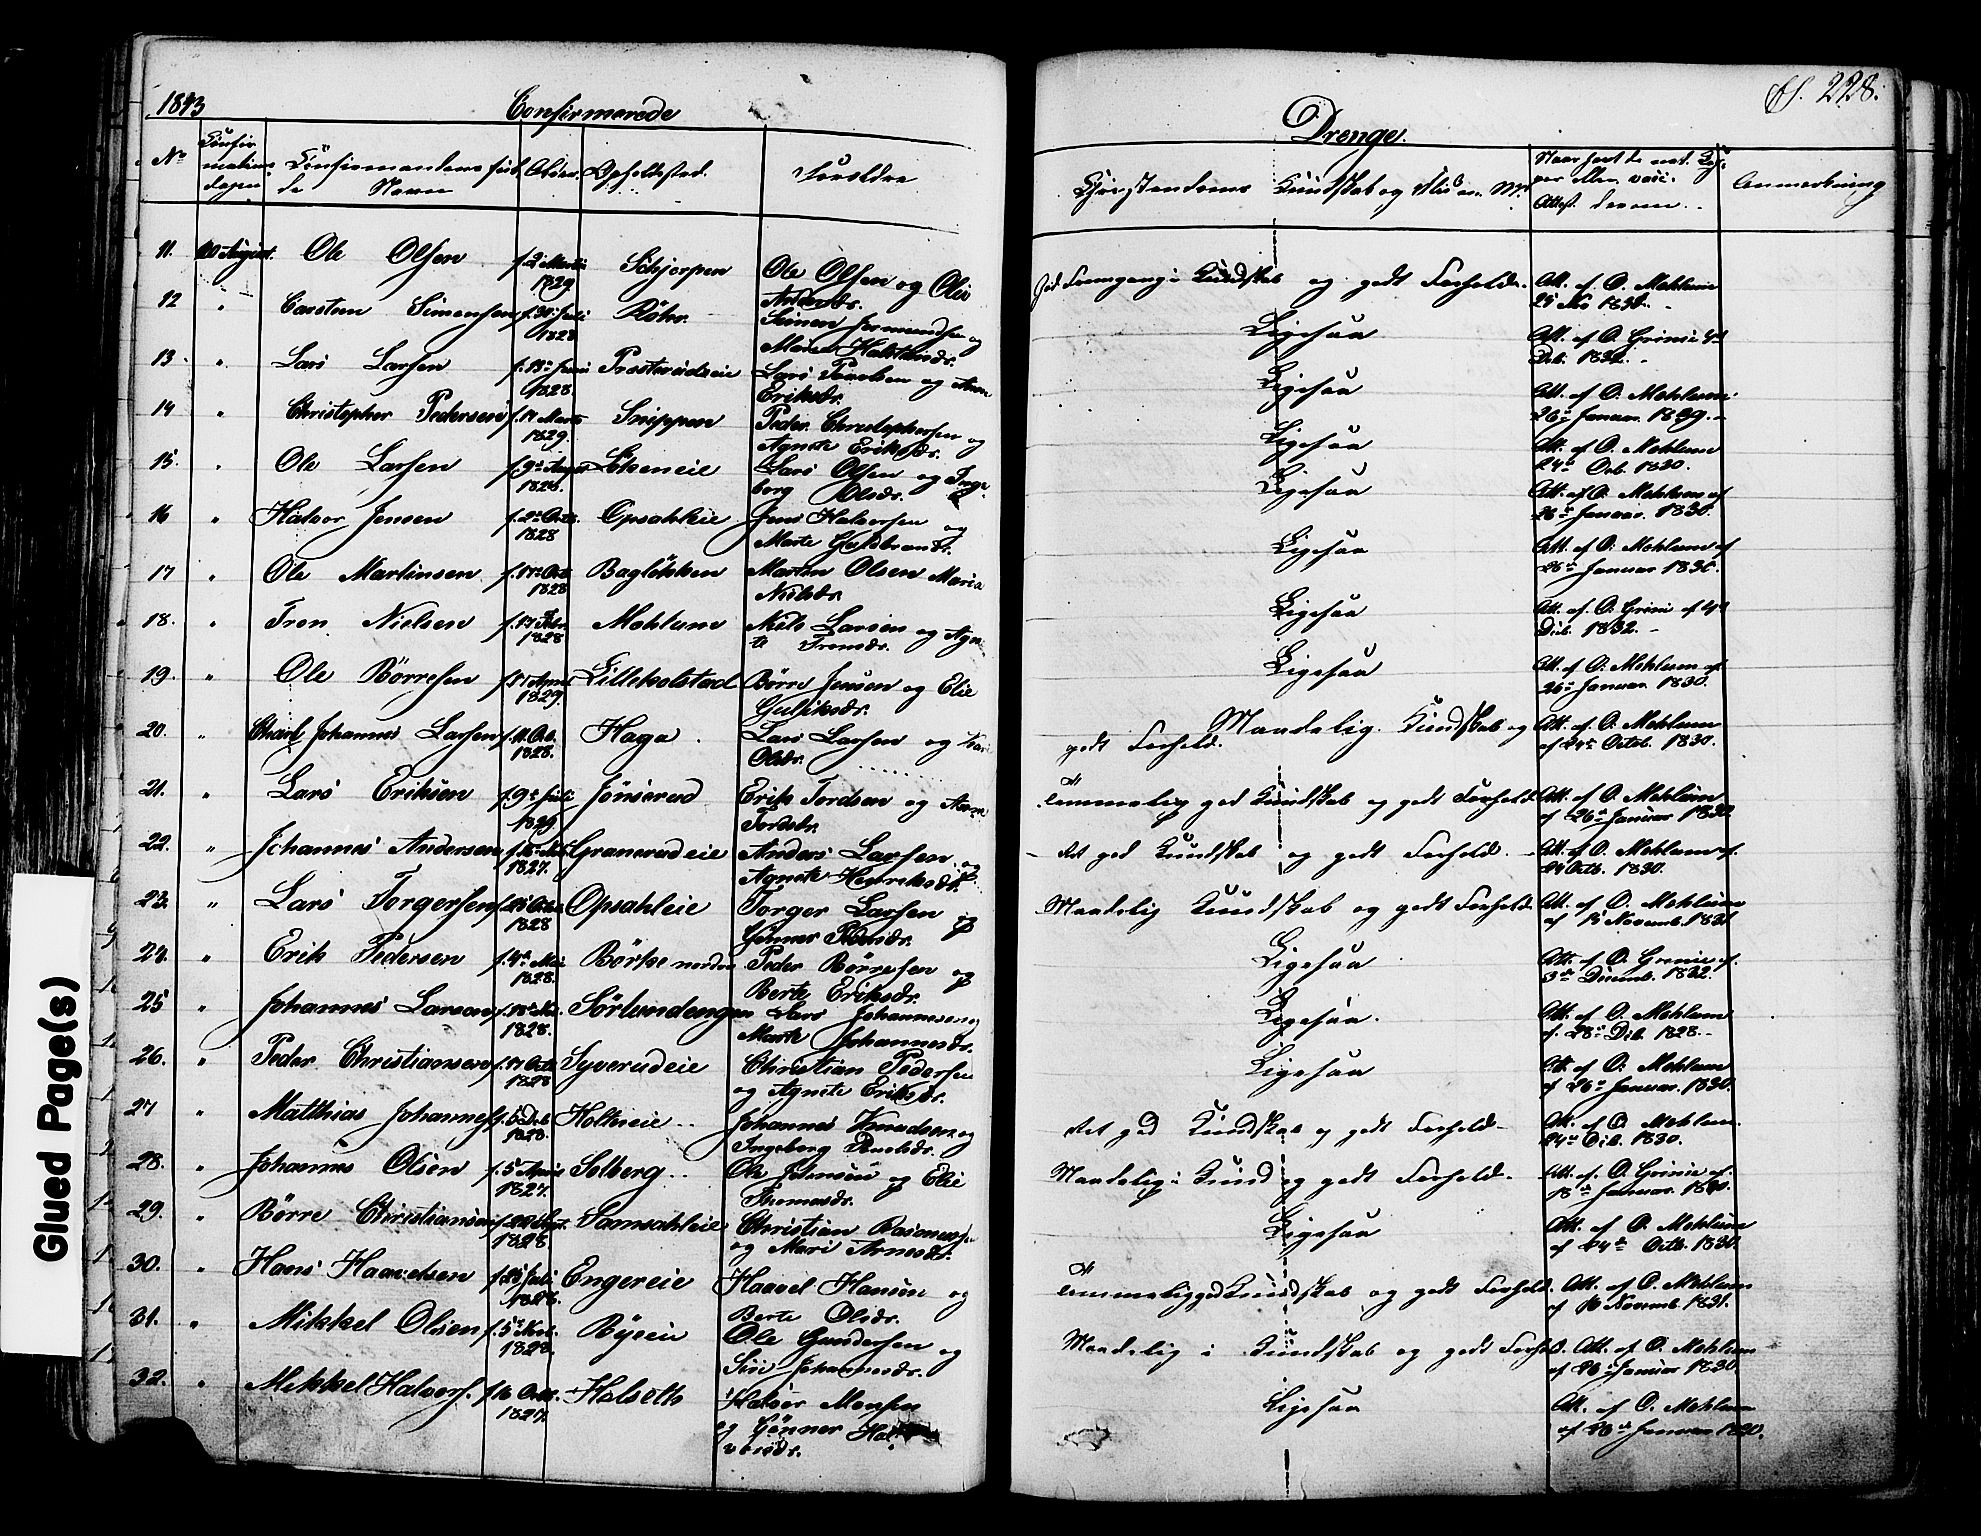 1843 Confirmerede
Drenge.
S. 228.
No Confirmations dagen Confirmandens fulde Navn Alder. Opholdsted. Forældre
Christendoms Kundskab og Anmerkning
11. 20 August. Ole Olsen f. 2 Marts 1829 Schjerpen Ole Olsen og Olia Andersdr.
God Fremgang i Kundskab og godt Forhold. Att. af O. Mehlum 25 1830.
12 " Carsten Simensen f. 30 Juli 1828 Röhr. Simen Jermundsen og Maren Halstensdr.
Ligesaa Att. af O. Grinie 4de Deb. 1832.
13 " Lars Larsen f. 13 1828 Prosterudeie Lars Poulsen og Anne Eriksdr.
Ligesaa Att. af O. Mehlum 26 Januar. 1829.
14 " Christopher Pedersen f. 14 Marts 1829 Snippen Peder Christophersen og Agnete Eriksdr.
Ligesaa Att. af O. Mehlum 24 1830.
15. " Ole Larsen f. 9 Aug 1828. Ekeneie Lars Olsen og Ingeborg Olsdr.
Ligesaa Att. af O. Mehlum af 26 Januar. 1830.
16 " Halvor Jensen f. 2 Octb. 1828 Opsahleie Jens Halvorsen og Marte Gulbrandsdr.
Ligesaa Att. af O. Mehlum af 26 Januar 1830.
17 " Ole Martinsen f. 17 Oct 1828 Baglökken Marten Olsen Maria Nielsdr.
Ligesaa Att. af O. Grinie af 4de Decb. 1832.
18. " Tron Nielsen f. 17 Febr. 1828 Mehlum Niels Larsen og Agnete Tronsdr.
Ligesaa Att. af O. Mehlum af 26 Januar 1830.
19. " Ole Börresen f. April 1829. Lillekolstad Börre Jensen og Elie Gulliksdr.
20. " Johannes Larsen f. 11 Oct. 1828. Haga. Lars Larsen og Kari Olsdr.
Maadelig Kundskab og godt Forhold. Att. af O. Mehlum af 24 Octob. 1830.
21. " Lars Eriksen f. 9 Juli 1829 Jönsrud Erik Tordsen og Anne Tordsdr.
Temmelig god Kundskab og godt Forhold Att. af O. Mehlum af 26 Januar 1830.
22. " Johannes Andersen 1827. Granerudeie Anders Larsen og Agnete Henriksdr.
Ret god Kundskab og godt Forhold. Att. af O. Mehlum af. 24 Octb. 1830.
23. " Lars Torgersen f. 26 Octb. 1828 Opsahleie Torger Larsen og Gunner
Maadelig Kundskab og godt Forhold Att. af O. Mehlum af 15 Novemb. 1831
24. " Erik Pedersen f. 4 Mai 1828. Börke nordre Peder Börresen og Berte Eriksdr.
Ligesaa Att. af O. Grinie af. 3 Decemb. 1832.
25 " Johannes Larsen f. 18 1828. Sörlundengen Lars Johannesen og Marte Johannesdr.
Ligesaa. Att. af O. Mehlum af. 28 Deb. 1828.
26. " Peder Christiansen f. 17 Octb 1828 Syverudeie Christian Pedersen og Agnete Eriksdr.
Ligesaa Att. af O. Mehlum af 26 Januar. 1830.
27 " Matthias Johannes f. 5 Deb 1828. Holtereie Johannes Knudsen og Ingeborg
Ret god Kundskab og godt Forhold. Att. af O. Mehlum 24 Deb. 1830.
28. " Johannes Olsen f. 5 April 1827. Solberg Ole Jensen og Elie Thomasdr.
Maadelig i Kundskab og godt Forhold. Att. af. O. Grinie af. 18 Januar.
29. " Börre Christiansen f. 22 Sept. 1828. Samsahleie Christian Rasmussen og Mari Arnesdr.
Ligesaa Att. af O. Mehlum af 24 Octb. 1830.
30. " Hans Haavelsen f. 26 Juli 1828. Engereie Haavel Hansen og Berte Olsdr.
Temmelig god Kundskab og godt Forhold. Att. af O. Mehlum af 16 Novemb. 1831.
31. " Mikkel Olsen f. 5 1828. Byeie Ole Gundersen og Siri Johannesdr.
Maadelig i Kundskab og godt Forhold. Att. af O. Mehlum af 26 Januar 1830
32. " Mikkel Halvors. f. 16 Octb. 1827. Halseth Halvor Monsen og Gunner Halvorsdr.
Ligesaa Att. af O. Mehlum af 26 Januar 1830.
Glued Page(s)